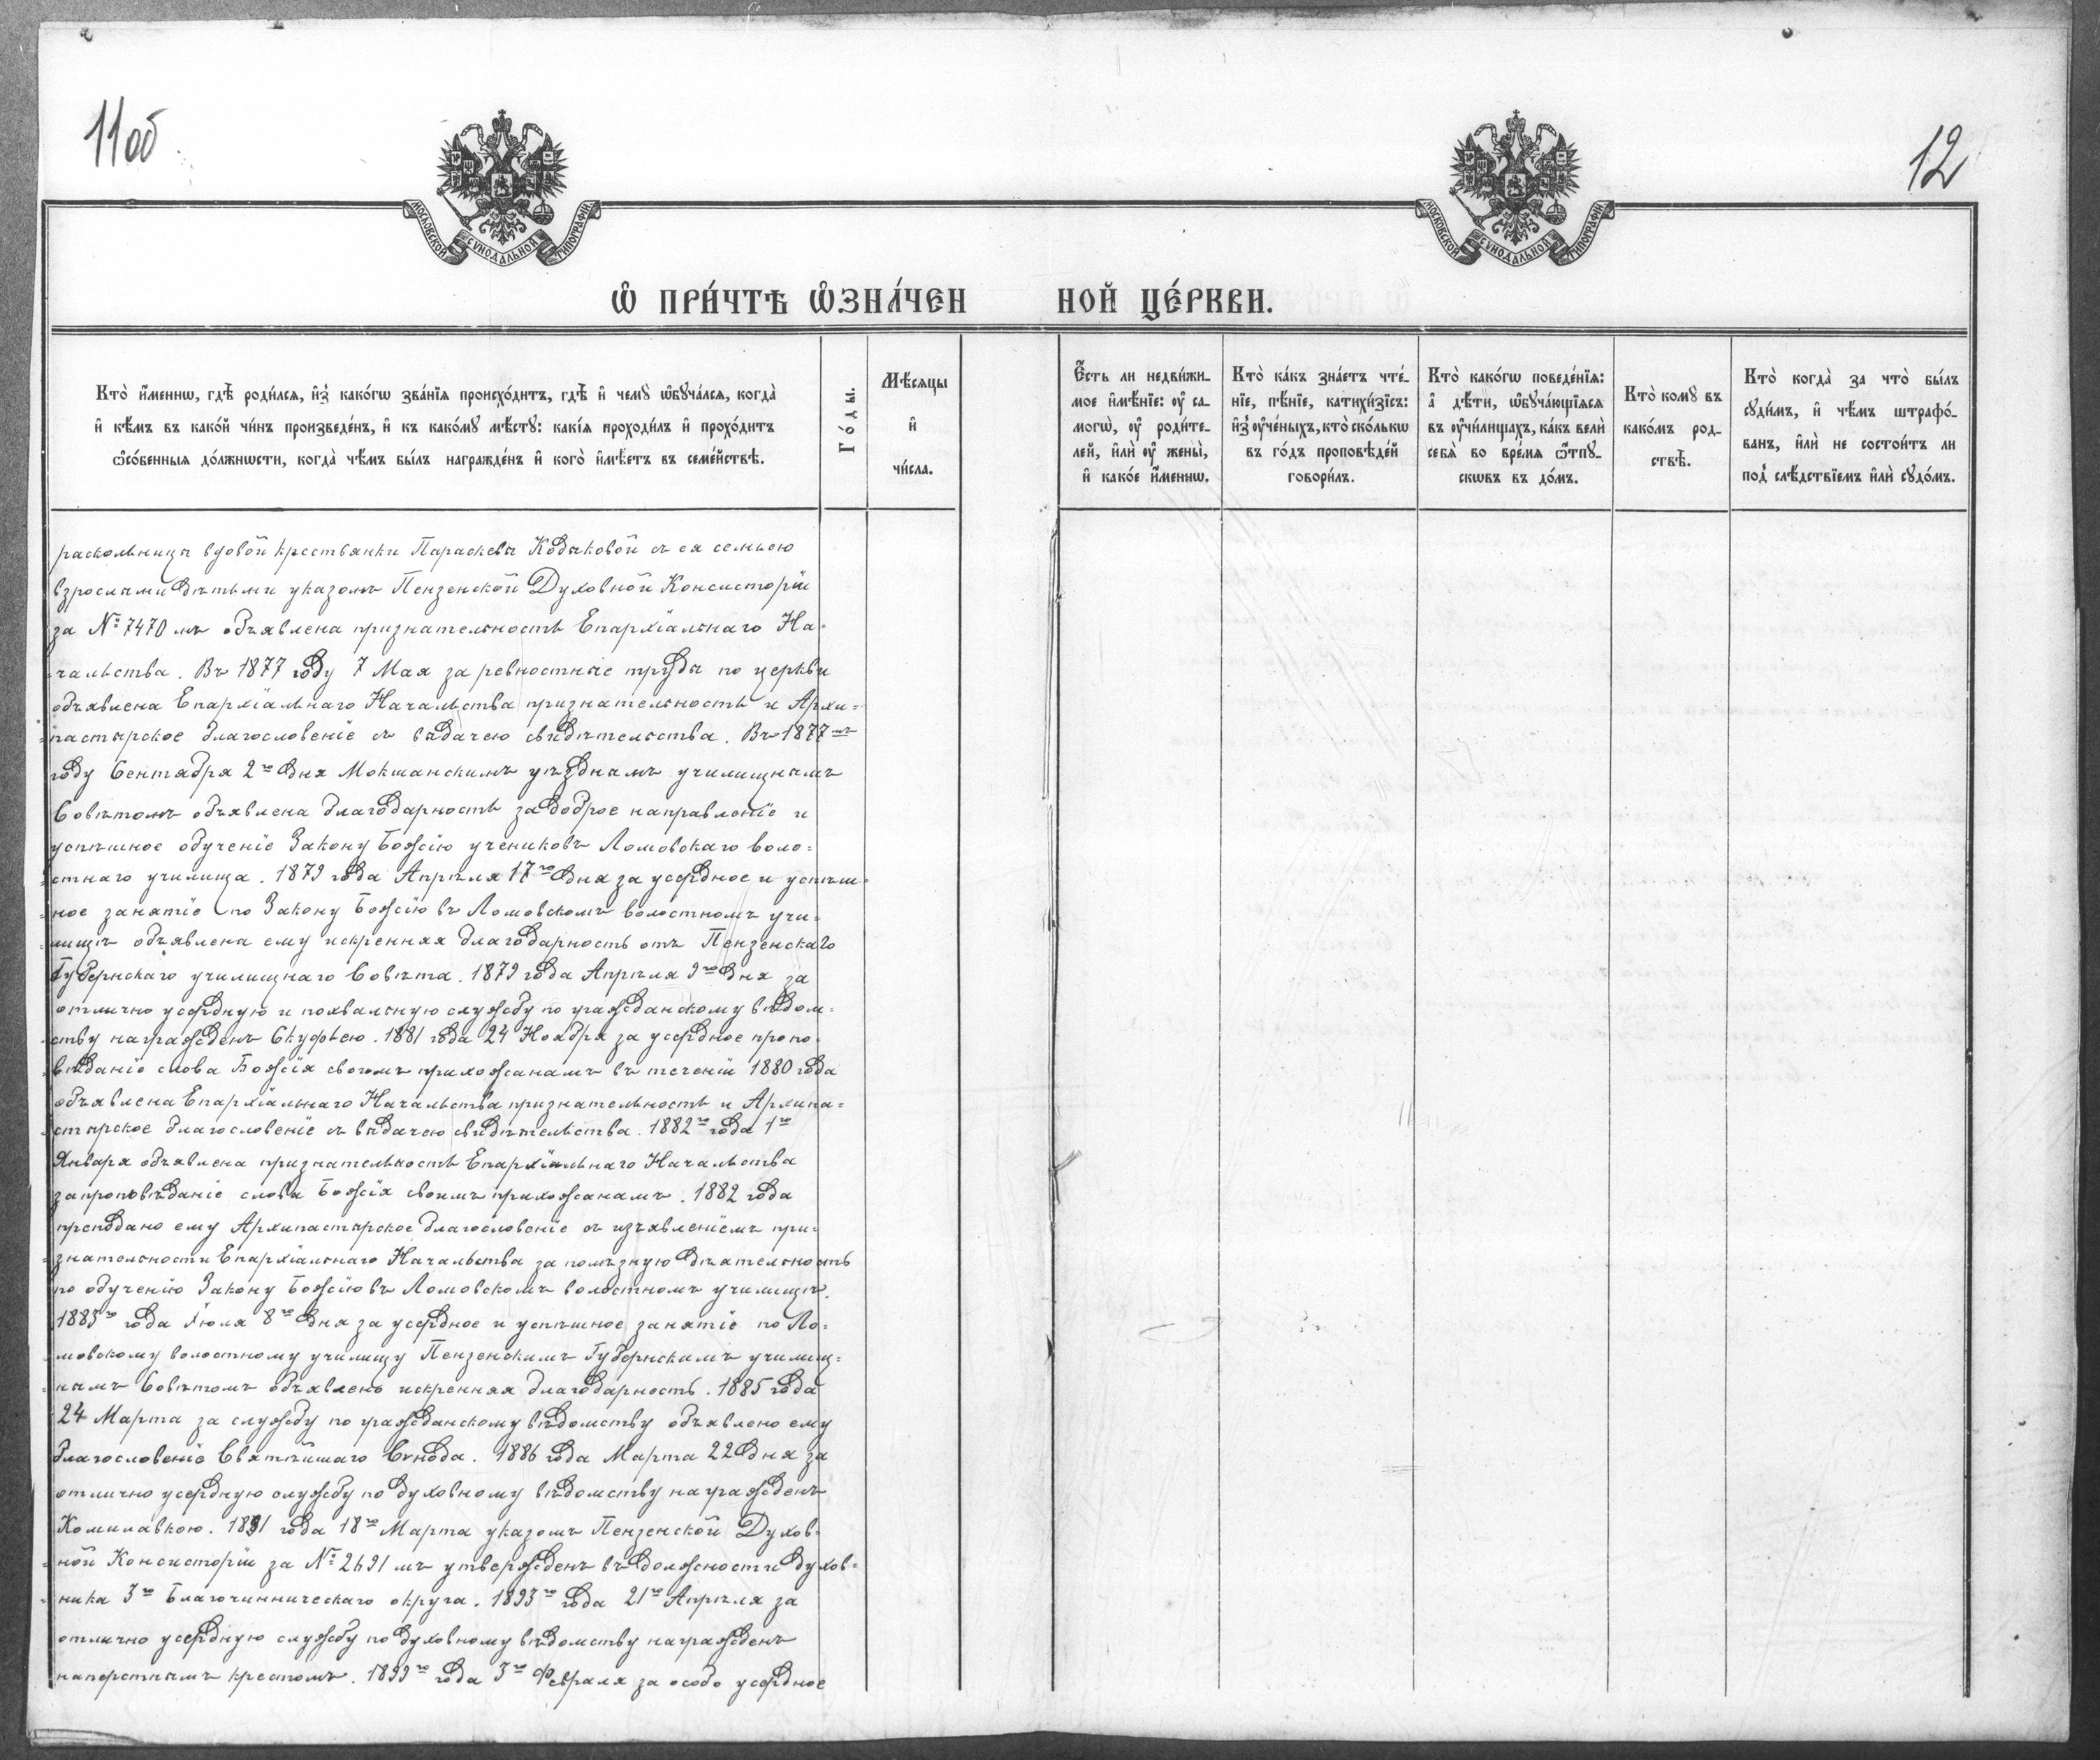 11 об
12
МОСКОВСКОЙ СѴНОДАЛЬНОЙ ТИПОГРАФІИ
МОСКОВСКОЙ СѴНОДАЛЬНОЙ ТИПОГРАФІИ
Ѡ҆ ПРИ́ЧТѢ Ѡ҆ЗНА́ЧЕН НОЙ ЦЕ́РКВИ.
Кто̀ и҆́меннѡ, гдѣ̀ роди́лсѧ, и҆з̾ како́гѡ зва́нїѧ происхо́дитъ, гдѣ̀ и҆ чемꙋ̀ ѡ҆бꙋча́лсѧ, когда̀
и҆ кѣ́мъ въ како́й чи́нъ произведе́нъ, и҆ къ како́мꙋ мѣ́стꙋ: какі́ѧ проходи́лъ и҆ прохо́дитъ
ѻ҆со́бенныѧ до́лжнѡсти, когда̀ чѣ́мъ бы́лъ награжде́нъ и҆ кого̀ и҆мѣ́етъ въ семе́йствѣ.
Го́ды.
Мѣ́сѧцы
и҆
чи́сла.
Є҆́сть ли недви́жи-
мое и҆мѣ́нїе: ᲂу҆ са-
могѡ̀, ᲂу҆ роди́те-
лей, и҆лѝ ᲂу҆ жены̀,
и҆ како́е и҆́меннѡ.
Кто̀ ка́къ зна́етъ чте́-
нїе, пѣ́нїе, катихи́зїсъ:
и҆з̾ ᲂу҆че́ныхъ, кто̀ ско́лькѡ
въ го́дъ проповѣ́дей
говори́лъ.
Кто̀ како́гѡ поведе́нїѧ:
а҆ дѣ́ти, ѡ҆бꙋча́ющїѧсѧ
въ ᲂу҆чи́лищахъ, ка́къ велѝ
себѧ̀ во вре́мѧ ѿпꙋ-
скѡвъ въ до́мъ.
Кто̀ комꙋ̀ въ
како́мъ род-
ствѣ̀.
Кто̀ когда̀ за что̀ бы́лъ
сꙋди́мъ, и҆ чѣ́мъ штрафо́-
ванъ, и҆лѝ не состои́тъ ли
под̾ слѣ́дствїемъ и҆лѝ сꙋдо́мъ.
раскольницы вдовой крестьянки Параскевы съ ея семьею
взрослыми дѣтьми указомъ Пензенской Духовной Консисторіи
за № 7470мъ объявлена признательность Епархіальнаго На-
чальства. Въ 1877 году 7 Мая за ревностные труды по церкви
объявлена Епархіальнаго Начальства признательность и Архи=
=пастырское благословеніе съ выдачею свидѣтельства. Въ 1877мъ
году Сентября 2го дня Мокшанскимъ уѣзднымъ училищнымъ
Совѣтомъ объявлена благодарность за доброе направленіе и
успѣшное обученіе Закону Божію учениковъ Ломовскаго воло=
=стнаго училища. 1879 года Апрѣля 17го дня за усердное и успѣш=
=ное занятіе по Закону Божію въ Ломовскомъ волостномъ учи=
=лищѣ объявлена ему искренняя благодарность отъ Пензенскаго
Губернскаго училищнаго Совѣта. 1879 года Апрѣля 9го дня за
отлично усердную и похвальную службу по гражданскому вѣдом=
ству награжденъ Скуфьею. 1881 года 24 Ноября за усердное пропо=
=вѣданіе слова Божія своимъ прихожанамъ въ теченіи 1880 года
объявлена Епархіальнаго Начальства признательность и Архипа=
=стырское благословеніе съ выдачею свидѣтельства. 1882го года 1го
Января объявлена признательность Епархіальнаго Начальства
за проповѣданіе слова Божія своимъ прихожанамъ. 1882 года
преподано ему Архипастырское благословеніе съ изъявленіемъ при=
=знательности Епархіальнаго Начальства за полезную дѣятельность
по обученію Закону Божію въ Ломовскомъ волостномъ училищѣ.
1883го года Іюля 8го дня за усердное и успѣшное занятіе по Ло=
мовскому волостному училищу Пензенскимъ Губернскимъ училищ=
=нымъ Совѣтомъ объявлено искренняя благодарность. 1885 года
24 Марта за службу по гражданскому вѣдомству объявлено ему
благословеніе Святѣйшаго Сѵнода. 1886 года Марта 22 дня за
отлично усердную службу по духовному вѣдомству награжденъ
Комилавкою. 1891 года 18го Марта указомъ Пензенской Духов=
=ной Консисторіи за № 2691мъ утвержденъ въ должности духов=
=ника 3го Благочинническаго округа. 1893го года 21го Апрѣля за
отлично усердную службу по духовному вѣдомству награжденъ
наперстнымъ крестомъ. 1899го года 3го Февраля за особо усердное